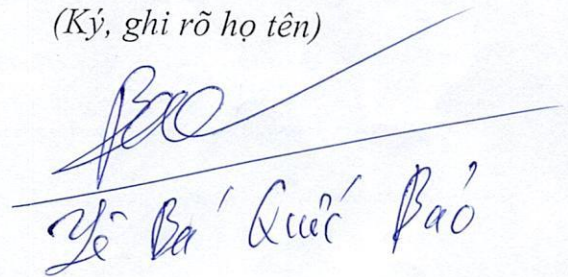 (Ký, ghi rõ họ tên)
Bảo
Lê Bá Quốc Bảo